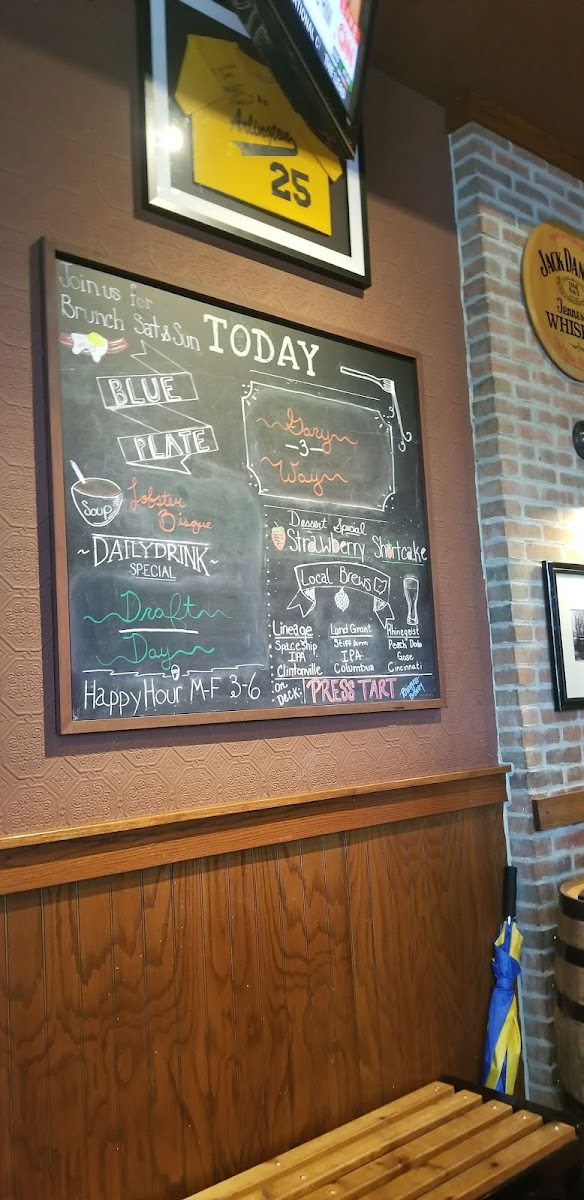 Arlington
25
JACK DAN
Tennes
WHISK
Join us for
Brunch Sat & Sun
TODAY
BLUE
PLATE
Gary
-3-
Way
Soup
Lobster
Bisque
~DAILY DRINK~
SPECIAL
Draft
Day
Happy Hour M-F 3-6
Dessert Special
Strawberry Shortcake
Local Brews
Lineage
Spaceship
IPA
Clintonville
Land Grant
Stiff Arm
IPA
Columbus
Rhinegeist
Peach Dodo
Gose
Cincinnati
on
DECK:
PRESS TART